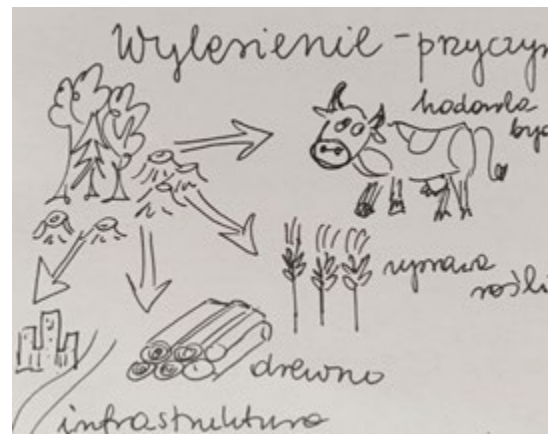 Wylesienie - przyczyn
hodowla
byd
uprawa
rośli
drewno
infrastruktura